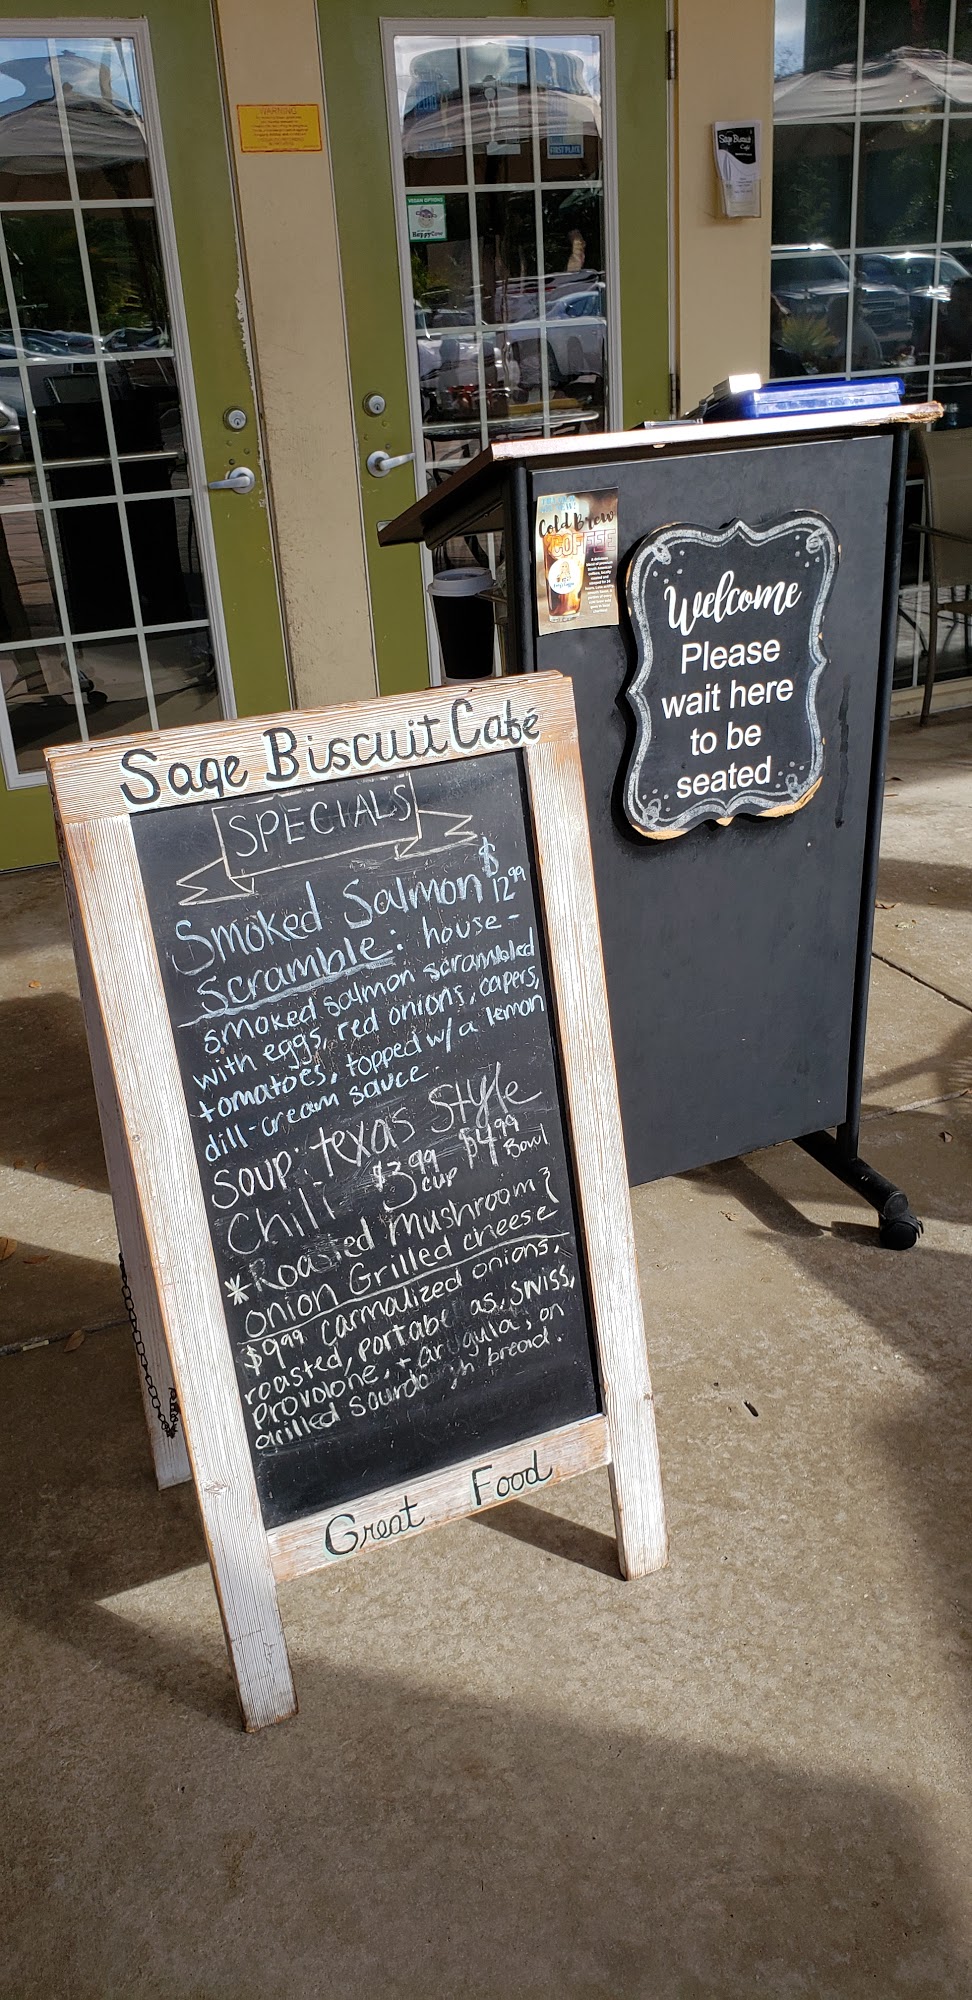 WARNING
FIRST PLACE
VEGAN OPTIONS
HappyCow
Sage Biscuit
Café
Cold Brew
COFFEE
Welcome
Please
wait here
to be
seated
Sage Biscuit Café
SPECIALS
Smoked Salmon $12.99
Scramble: house-
smoked salmon scrambled
with eggs, red onions, capers,
tomatoes, topped w/ a lemon
dill-cream sauce.
Soup: Texas Style
Chili $3.99 cup $4.99 Bowl
*Roasted Mushroom &
onion Grilled cheese
$9.99 carmalized onions,
roasted, portabe as, swiss,
provolone, + ar gula, on
grilled sourdo gh bread.
Great Food